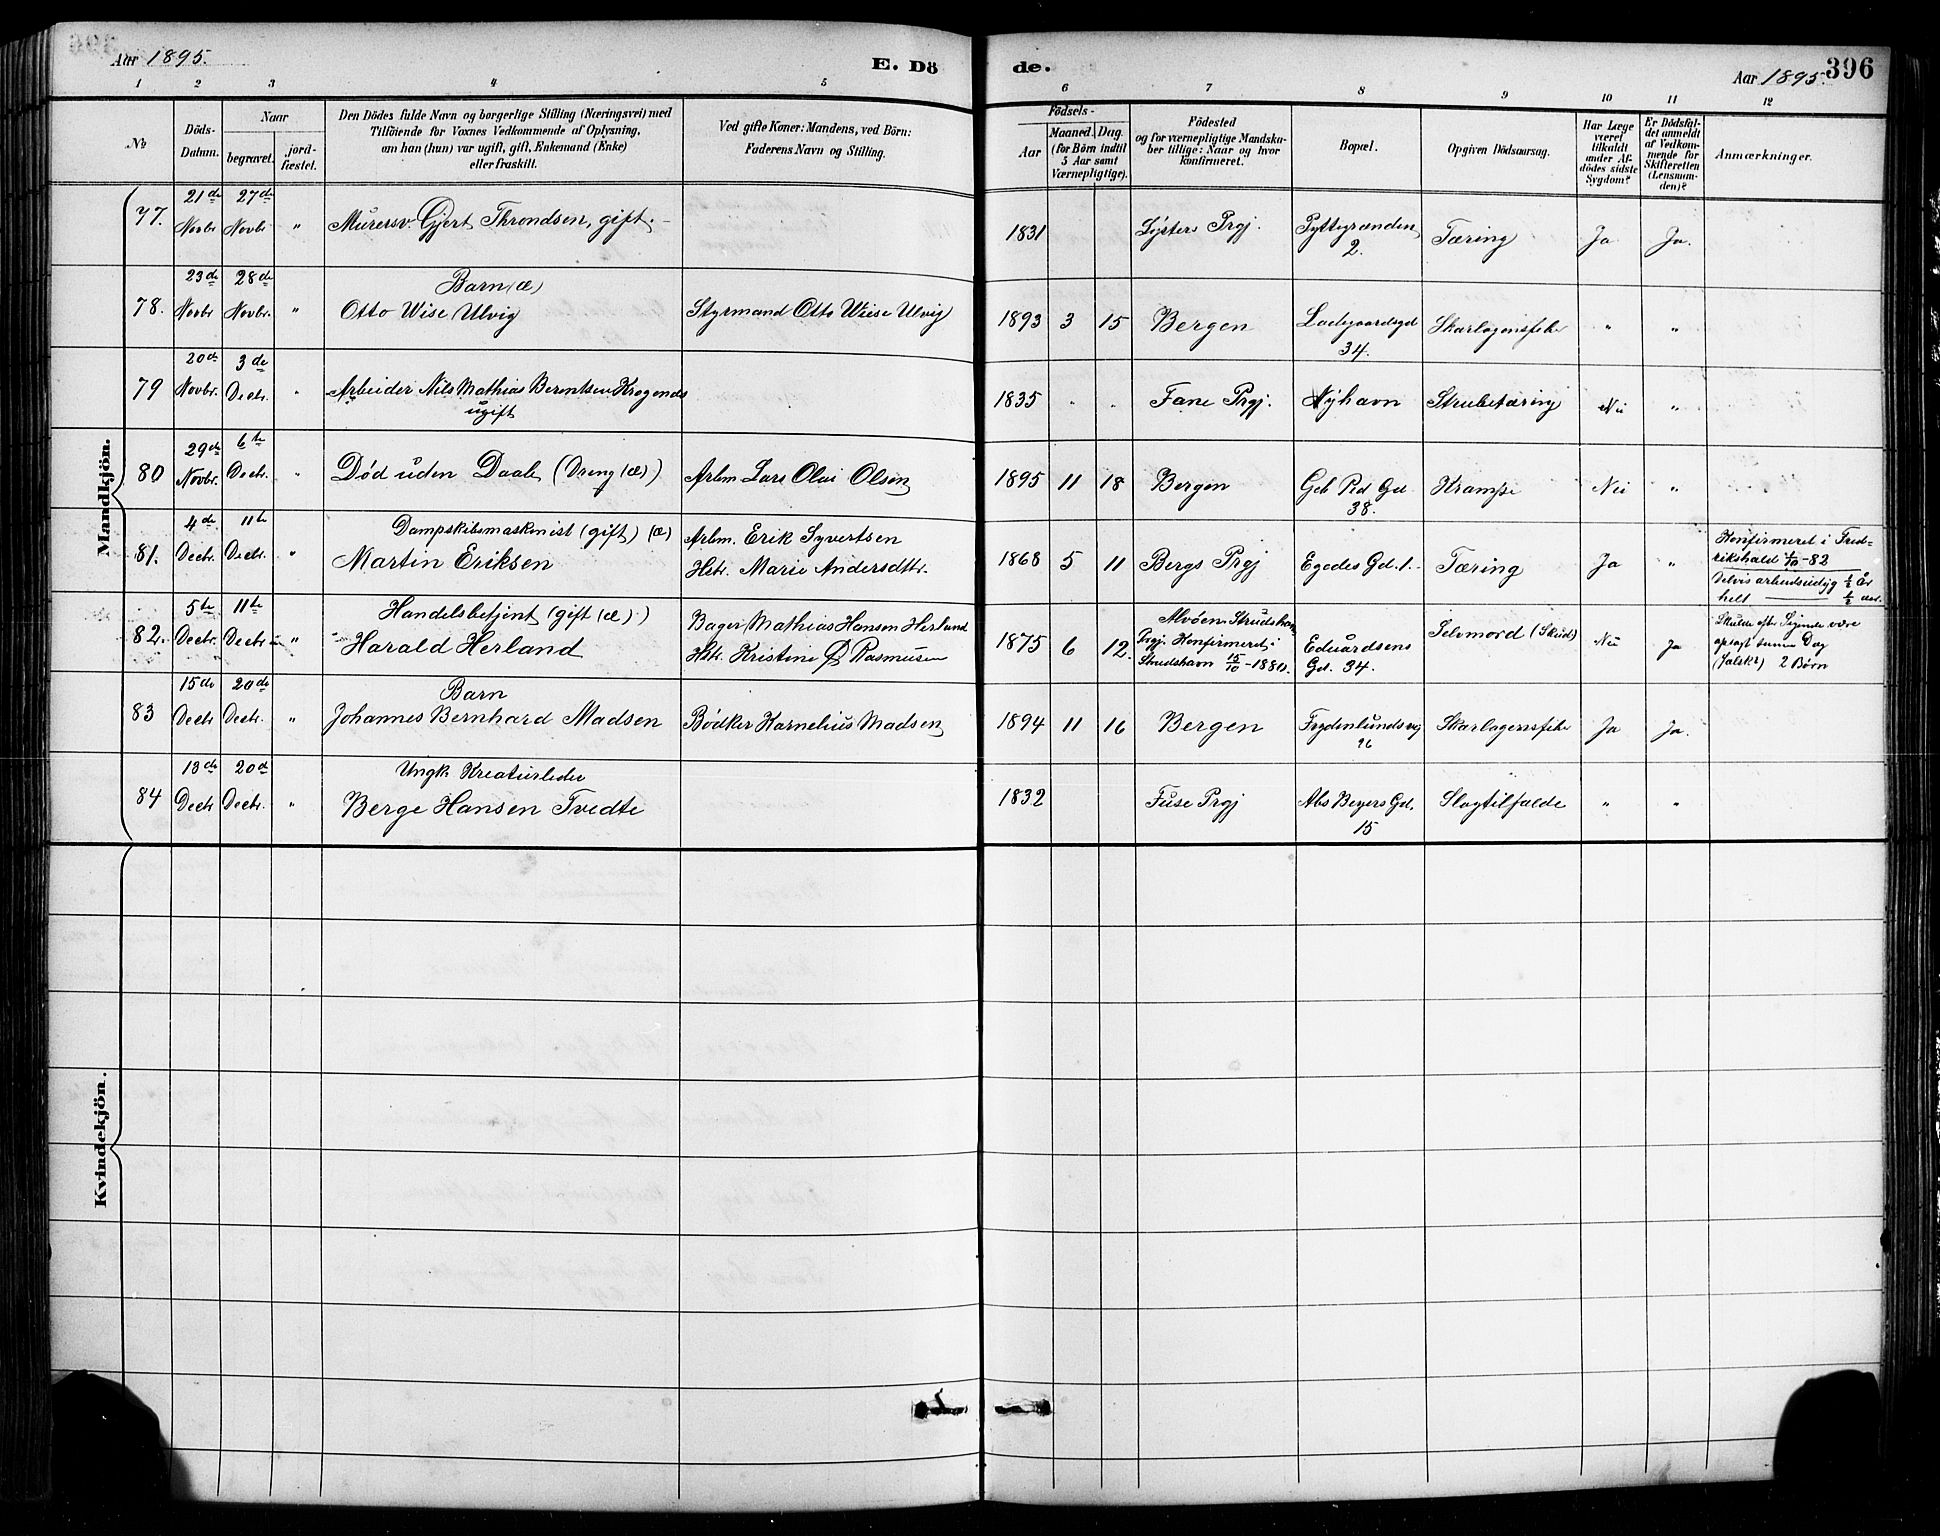 Aar 1895.
E. Dö
de.
Aar 1895.
396
1 2 3 4 5 6 7 8 9 10 11 12
No
Döds-
Datum.
Naar
begravet.
jord-
fæstet.
Den Dödes fulde Navn og borgerlige Stilling (Næringsvei) med
Tilföiende for Voxnes Vedkommende af Oplysning,
om han (hun) var ugift, gift, Enkemand (Enke)
eller fraskilt.
Ved gifte Koner: Mandens, ved Börn:
Faderens Navn og Stilling.
Födsels-
Aar
Maaned. Dag.
(for Börn indtil
5 Aar samt
Værnepligtige).
Födested
og for værnepligtige Mandska-
ber tillige: Naar og hvor
konfirmeret.
Bopæl.
Opgiven Dödsaarsag.
Har Læge
været
tilkaldt
under Af-
dödes sidste
Sygdom?
Er Dödsfal-
det anmeldt
af Vedkom-
mende for
Skifteretten
(Lensman-
den)?
Anmærkninger.
Mandkjön.
77.
21de
Novbr
27de
Novbr
"
Murersv. Gjert Throndsen, gift.
1831
Lyster Prgj.
Pyttegrænden
2.
Tæring
Ja
Ja.
78.
23de
Novbr
28de
Novbr.
"
Barn (æ)
Otto Wise Ulvig
Styrmand Otto Wiese Ulvig
1893 3 15
Bergen
Ladegaardsgd
34.
Skarlagensfeber
"
"
79
20de
Novbr.
3de
Decbr.
"
Arbeider Nils Mathias Berentsen
ugift
1835 " "
Fane Prgj.
Nyhavn
Strubetæring
Nei
"
80
29de
Novbr.
6te
Decbr.
"
Død uden Daab (Dreng (æ))
Arbm Lars Olai Olsen
1895 11 18
Bergen
Geb Ped Gd
38.
Krampe
Nei
"
81.
4de
Decbr.
11te
Decbr.
"
Dampskibsmaskinist (gift) (æ)
Martin Eriksen
Arbm. Erik Syvertsen
Hstr. Marie Andersdttr.
1868 5 11
Bergs Prgj
Egedes Gd. 1.
Tæring
Ja
"
Konfirmeret i Fred-
rikshald 1/10-82
Delvis arbeidsudyg 1/2 År
helt 1/2 do.
82.
5te
Decbr.
11te
Decbr
"
Handelsbetjent (gift (æ))
Harald Herland
Bager Mathias Hansen Herland
Hstr. Kristine Ø Rasmusen
1875 6 12.
Alvøen Strudshavn
Prgj. Konfirmeret i
Strudshavn 15/10-1880.
Eduardsens
Gd. 34.
Selvmord (Skud)
Nei
Ja
Skulde efter Sigende være
opsagt samme Dag
2 Børn
83
15de
Decbr
20de
Decbr.
"
Barn
Johannes Bernhard Madsen
Bødker Kornelius Madsen
1894 11 16
Bergen
Frydenlundsvej
26
Skarlagensfeber
Ja
Ja.
84
13de
Decbr
20de
Decbr.
"
Ungk. Kreaturleder
Berge Hansen Tvedte
1832
Fuse Prgj
Abs Beyers Gd.
15
Slagtilfælde
"
"
Kvindekjön.